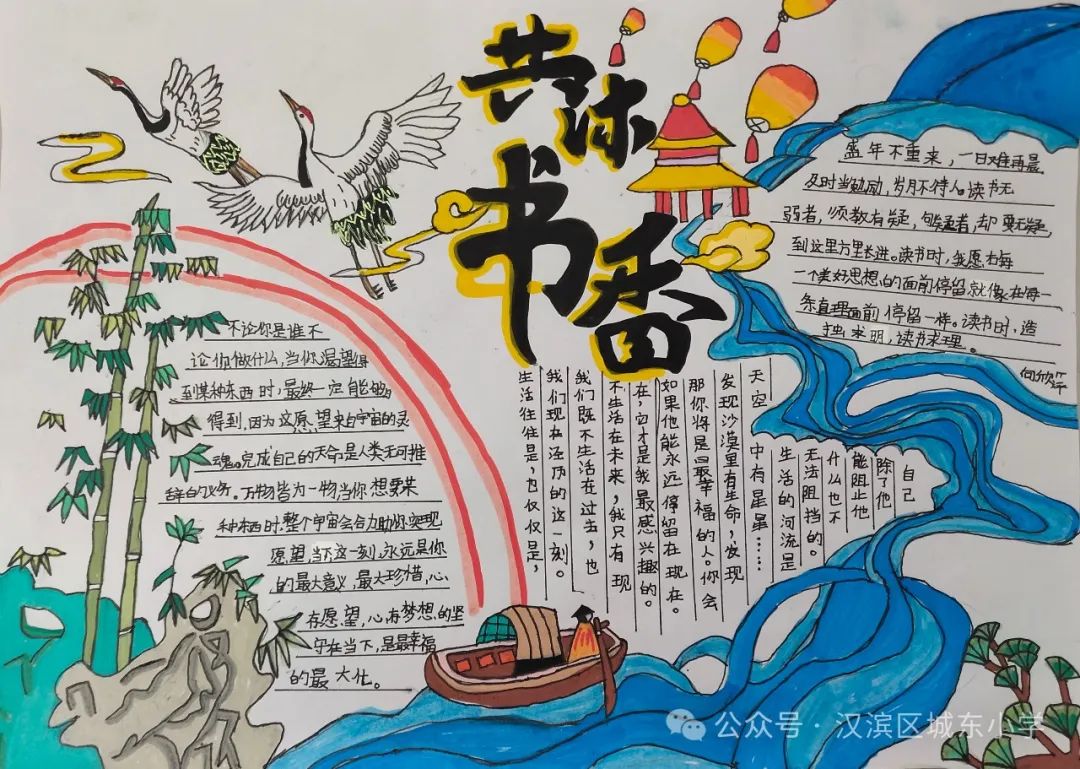 共沐书香
不论你是谁不
论你做什么，当你渴望得
到某种东西时，最终一定能够
得到，因为这愿望来自宇宙的灵
魂。完成自己的天命是人类无可推
辞的义务。万物皆为一物当你想要某
种东西时，整个宇宙会合力助你实现
愿望，当下这一刻，永远是你
的最大意义，最大珍惜，心
存愿望，心有梦想，的坚
守在当下，是最幸福
的最大化。
生活往往是，也仅仅是，
我们现在还历的这一刻。
我们既不生活在过去，也
不生活在未来，我只有现
在，它才是我最感兴趣的。
如果他能永远停留在现在。
那你将是最幸福的人。你会
发现沙漠里有生命，发现
天空中有星星……
生活的河流是
无法阻挡的。
什么也不
能阻止他
除了他
自己
盛年不重来，一日难再晨
及时当勉励，岁月不待人。读书无
疑者，须教有疑，有疑者，却要无疑，
到这里方里长进。读书时，我愿在每
一个美好思想的面前停留就像在每一
条真理面前停留一样。读书时，造
烛求明，读书求理。
公众号·汉滨区城东小学